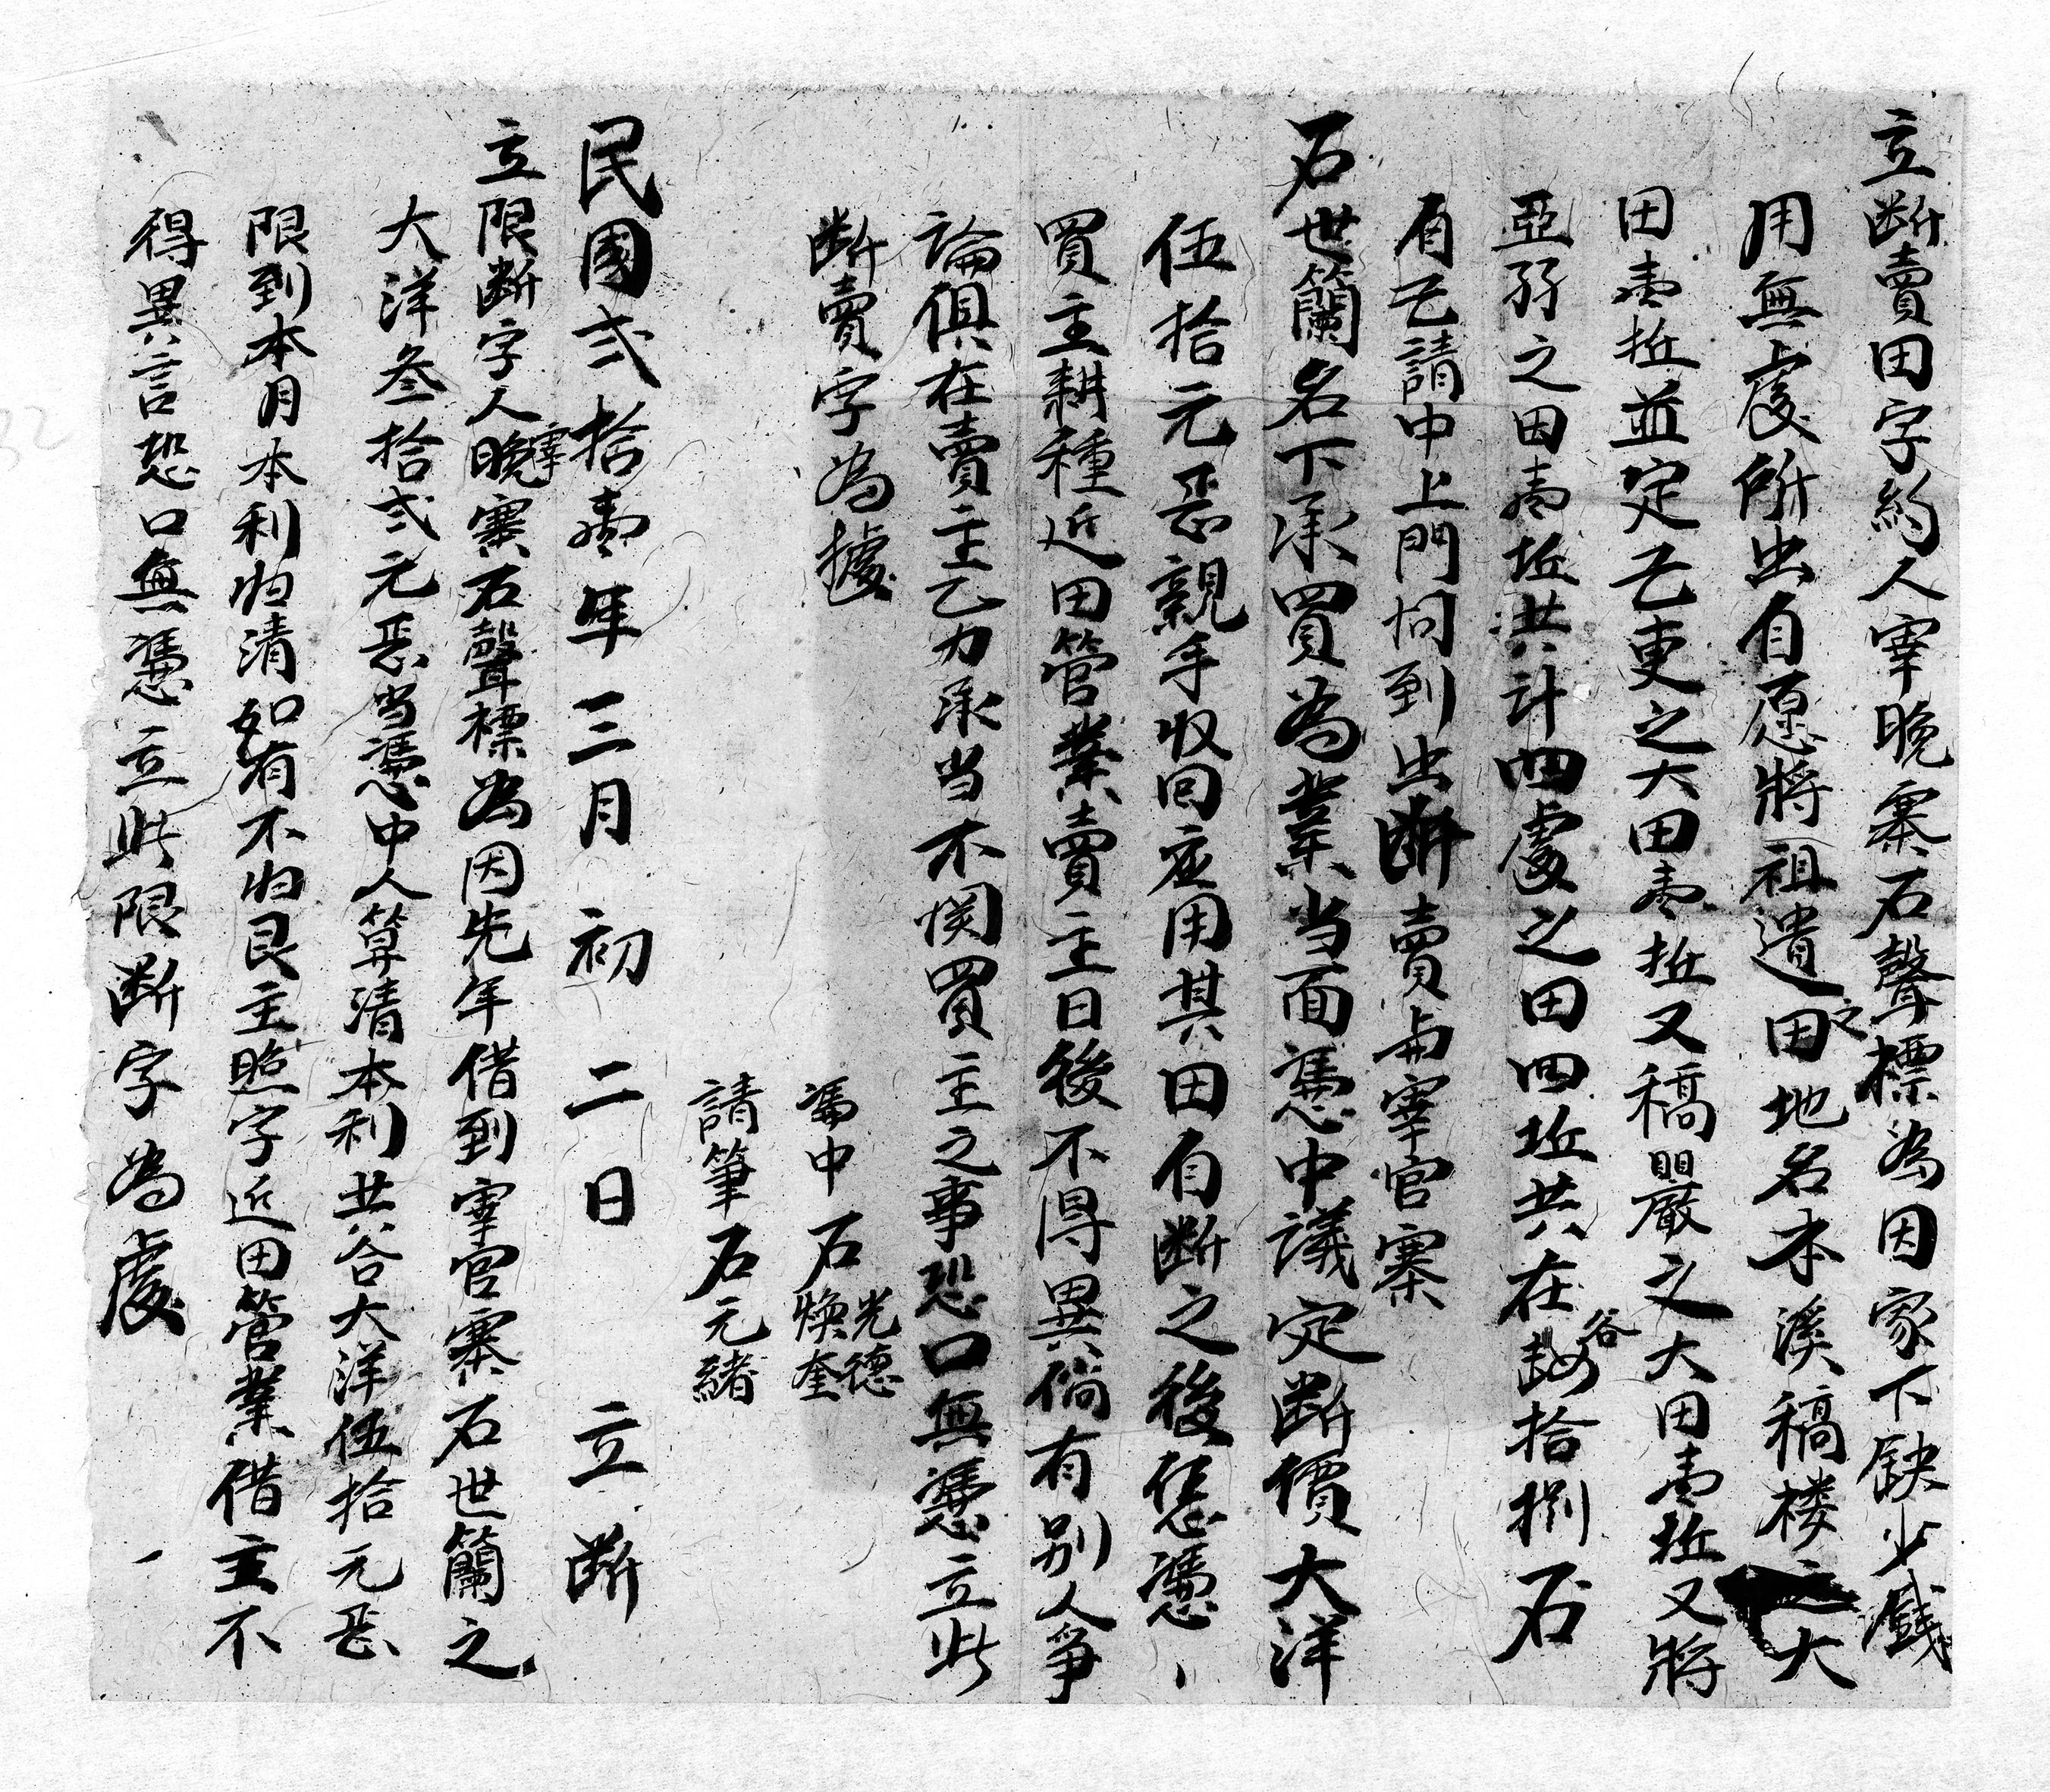 立断賣田字約人宰晚寨石聲標為因家下缺少錢
用無處所出自愿將祖遺之田地名本溪稿楼之大
田壹坵並定乞更之大田壹坵又稿巖之大田壹坵又將
亞孖之田壹坵共計四處之田四坵共在谷拾捌石
自己請中上門问到出断賣与宰官寨
石世籣名下承買為業当面憑中議定断價大洋
伍拾元㤙親手收回应用其田自断之後恁憑
買主耕種近田管業賣主日後不得異倘有别人爭
論俱在賣主乙力承当不関買主之事恐口無憑立此
断賣字為據
憑中 石 光德 焕奎
請筆石元緒
民國弍拾壹年三月初二日 立断
立限断字人宰晚寨石聲標為因先年借到宰官寨石世籣之
大洋叁拾弍元㤙当憑中人算清本利共合大洋伍拾元㤙
限到本月本利归清如有不归艮主照字近田管業借主不
得異言恐口無憑立此限断字為處